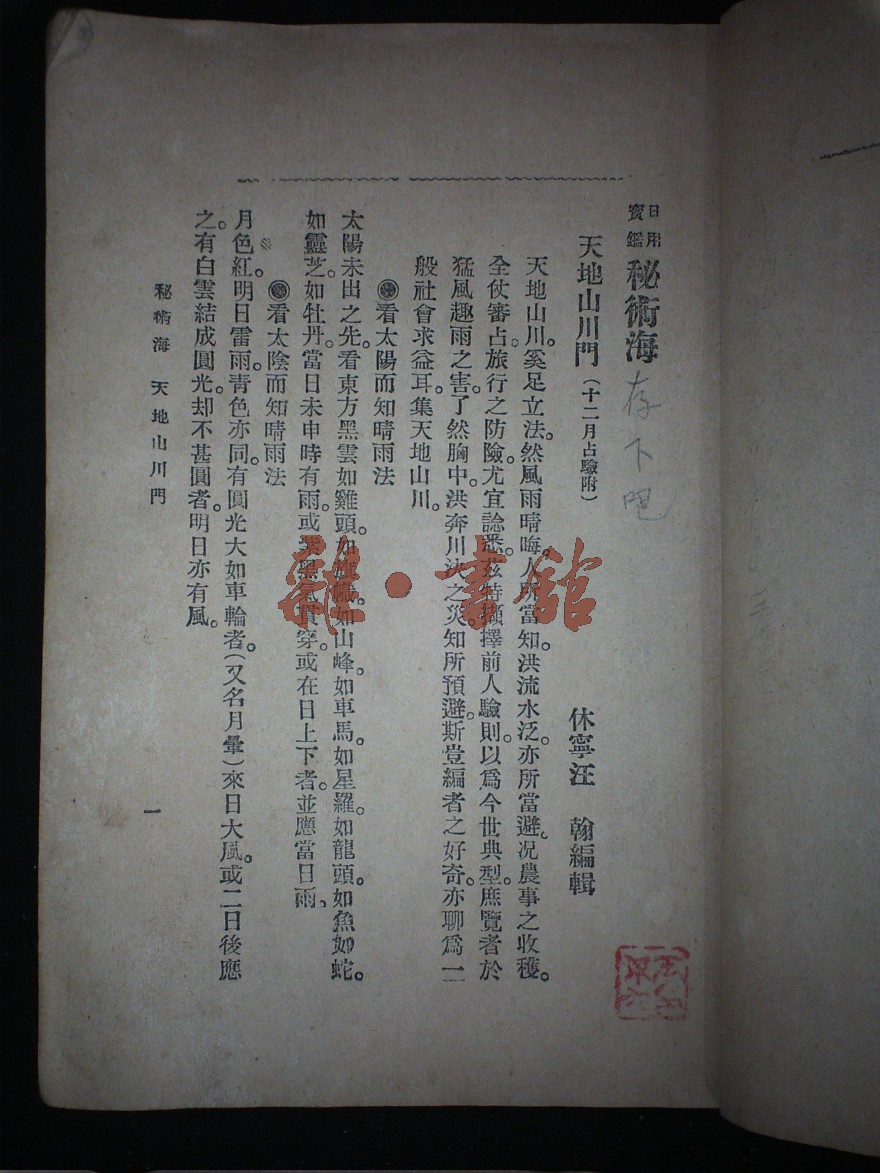 日用寶鑑 秘術海
存下吧
天地山川門(十二月占驗附)
休寧汪 翰編輯
天地山川。奚足立法。然風雨晴晦。人所當知。洪流水泛。亦所當避。况農事之收穫。
全仗審占。旅行之防險。尤宜諗悉。茲特擷擇前人驗則。以爲今世典型。庶覽者於
猛風趣雨之害。了然胸中。洪奔川決之災。知所預避。斯豈編者之好奇。亦聊爲一
般社會求益耳。集天地山川。
看太陽而知晴雨法
太陽未出之先。看東方黑雲如雞頭。如旗幟。如山峰。如車馬。如星羅。如龍頭。如魚如蛇。
如靈芝。如牡丹。當日未申時有雨。或紫黑氣貫穿。或在日上下者。並應當日雨、
看太陰而知晴雨法
月色紅。明日雷雨。靑色亦同。有圓光大如車輪者。(又名月暈)來日大風。或二日後應
之。有白雲結成圓光。却不甚圓者。明日亦有風。
秘術海 天地山川門
一
雜·書館